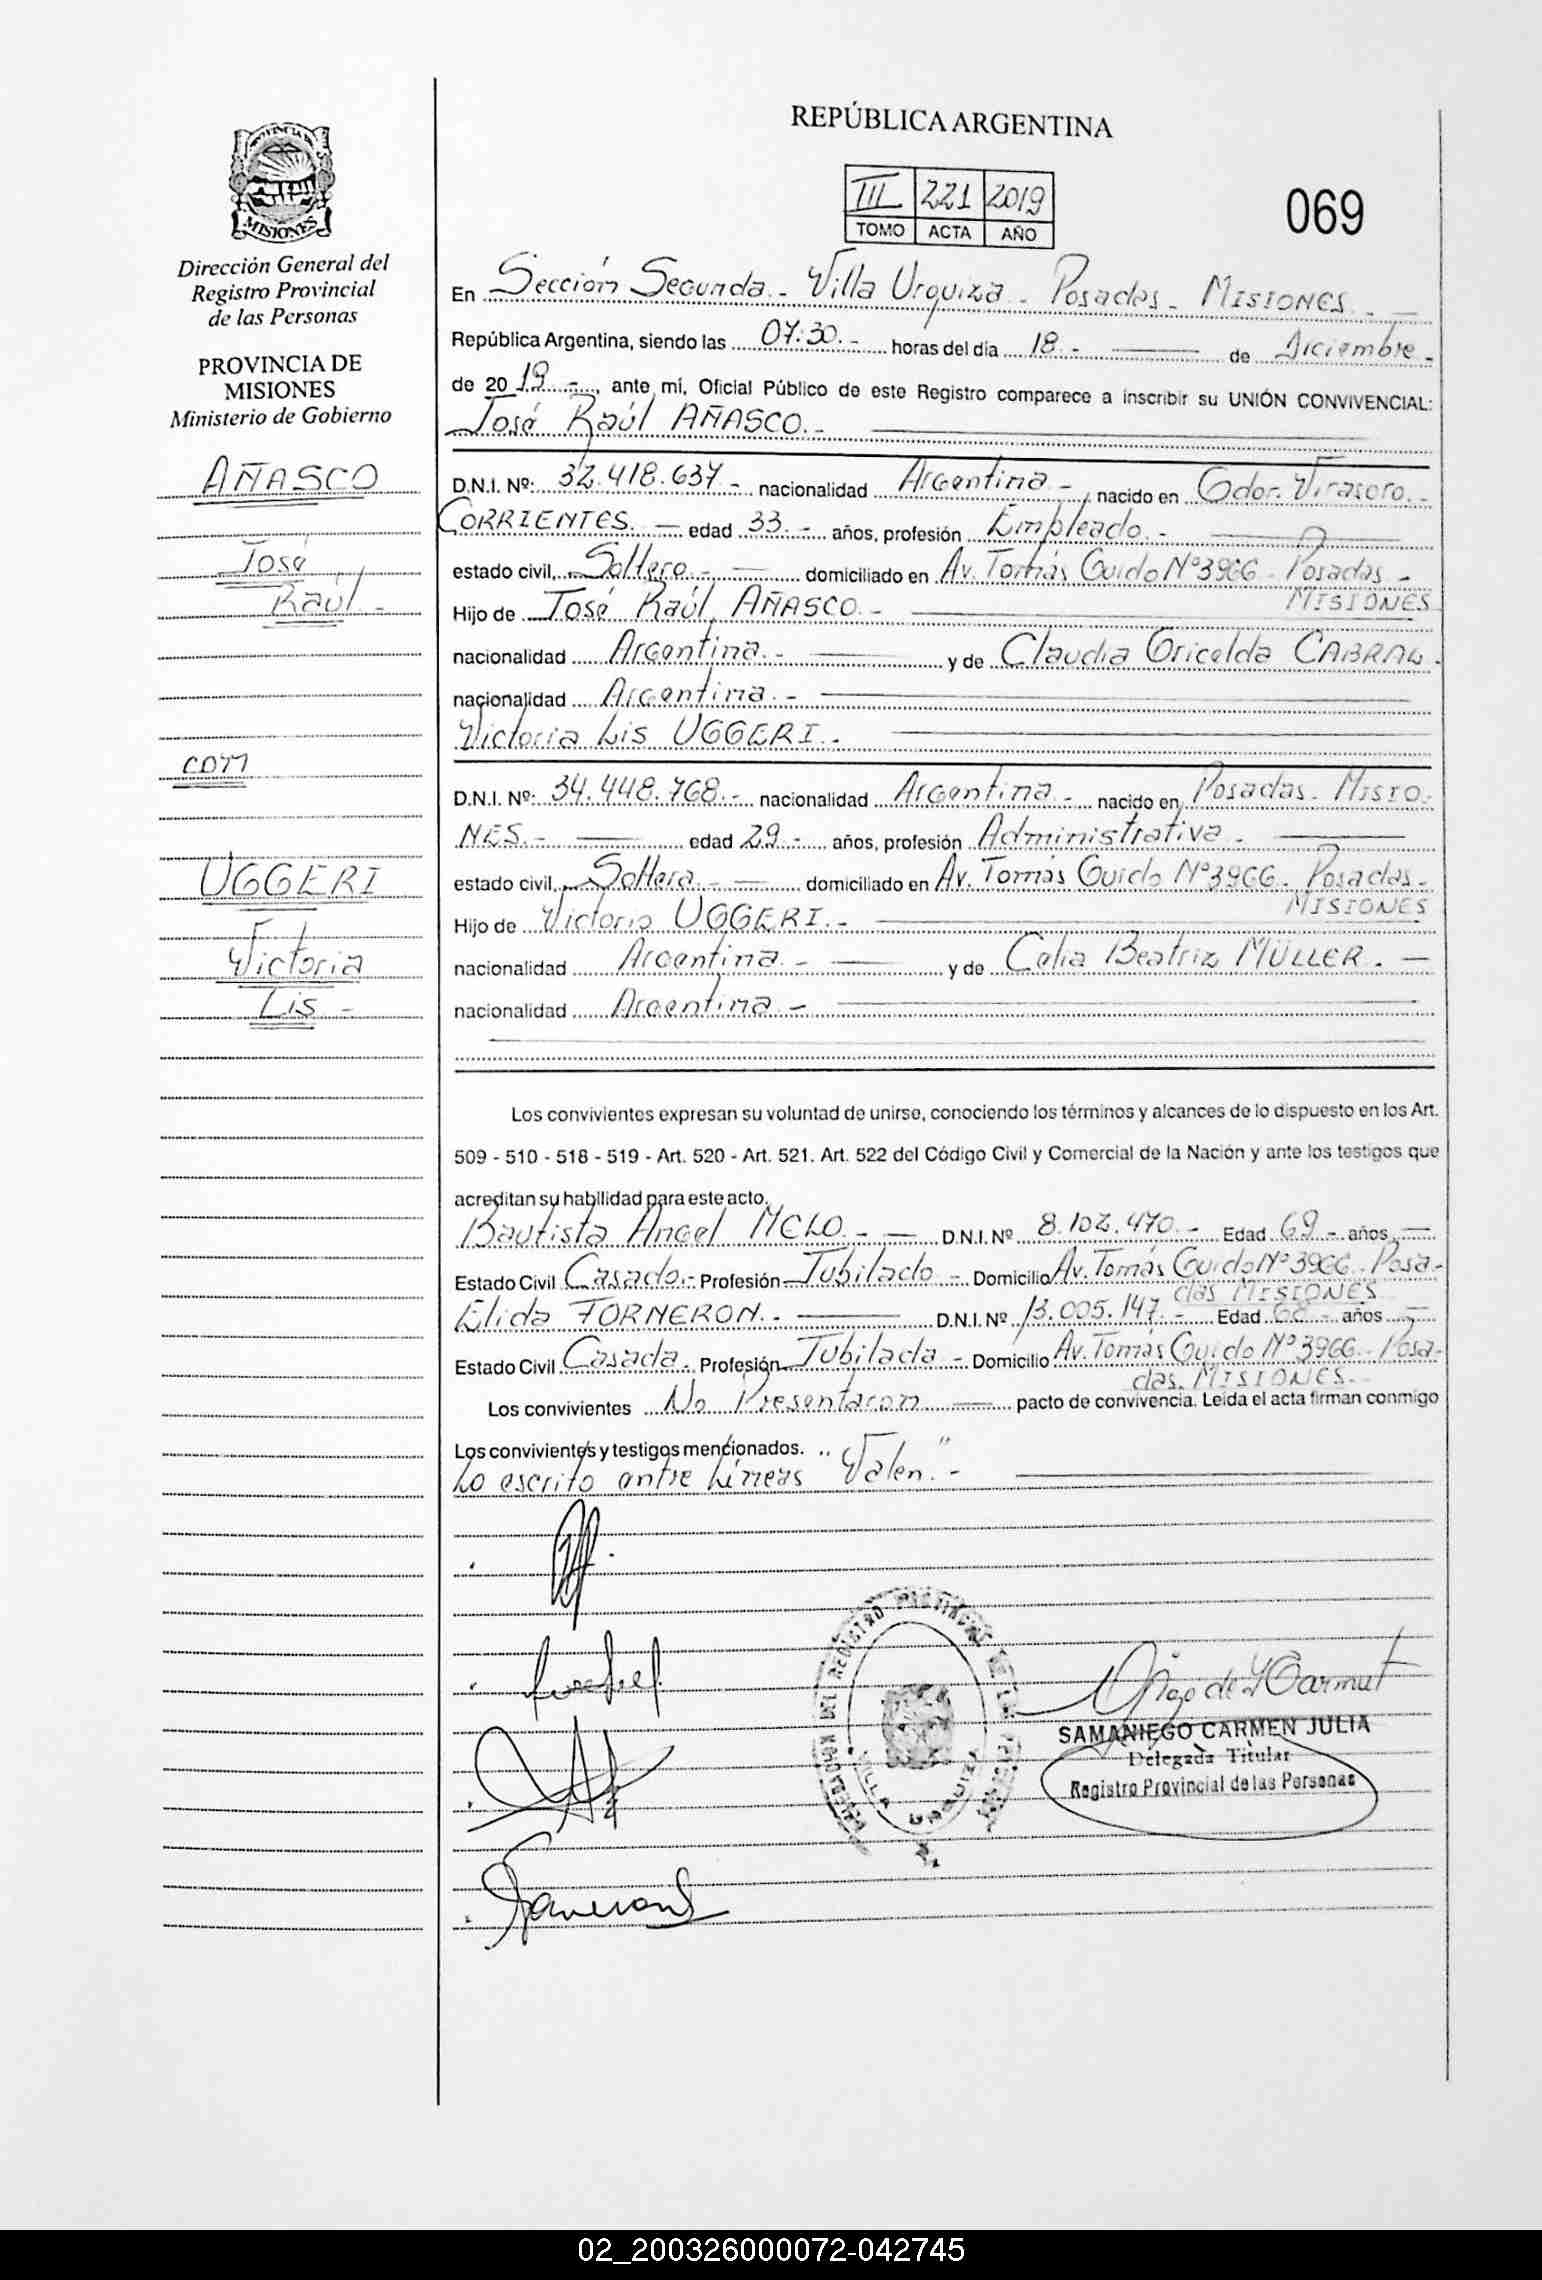 PROVINCIA DE
MISIONES
Dirección General del
Registro Provincial
de las Personas
PROVINCIA DE
MISIONES
Ministerio de Gobierno
AÑASCO
José
Raúl -
con
UGGERI
Victoria
Lis -
REPÚBLICA ARGENTINA
III 221 2019
TOMO ACTA AÑO
069
En Sección Segunda.- Villa Urquiza - Posadas - MISIONES. -
República Argentina, siendo las 07:30.- horas del día 18.- de Diciembre -
de 2019.-, ante mí, Oficial Público de este Registro comparece a inscribir su UNIÓN CONVIVENCIAL:
José Raúl AÑASCO.-
D.N.I. Nº: 32.418.637.- nacionalidad Argentina.-, nacido en Gdor. Virasoro.-
CORRIENTES. - edad 33.- años, profesión Empleado.-
estado civil, Soltero.- domiciliado en Av. Tomás Guido Nº 3966 - Posadas -
MISIONES
Hijo de José Raúl AÑASCO.-
nacionalidad Argentina.- y de Claudia Gricelda CABRAL.
nacionalidad Argentina.-
Victoria Lis UGGERI.-
D.N.I. Nº: 34.448.768.- nacionalidad Argentina.- nacido en Posadas - MISIO-
NES.- edad 29.- años, profesión Administrativa.-
estado civil, Soltera.- domiciliado en Av. Tomás Guido Nº 3966 - Posadas.-
MISIONES
Hijo de Victorio UGGERI.-
nacionalidad Argentina.- y de Celia Beatriz MÜLLER. -
nacionalidad Argentina.-
Los convivientes expresan su voluntad de unirse, conociendo los términos y alcances de lo dispuesto en los Art.
509 - 510 - 518 - 519 - Art. 520 - Art. 521. Art. 522 del Código Civil y Comercial de la Nación y ante los testigos que
acreditan su habilidad para este acto.
Bautista Angel MELO.- D.N.I. Nº 8.102.470.- Edad 69 - años
Estado Civil Casado.- Profesión Jubilado - Domicilio Av. Tomás Guido Nº 3966 - Posa-
das MISIONES
Elida FORNERON.- D.N.I. Nº 13.005.147.- Edad - años
Estado Civil Casada. Profesión Jubilada - Domicilio Av. Tomás Guido Nº 3966 - Posa-
das. MISIONES.-
Los convivientes No Presentaron pacto de convivencia. Leída el acta firman conmigo
Los convivientes y testigos mencionados.
Lo escrito entre Líneas "Valen."-
VILLA URQUIZA
SAMANIEGO CARMEN JULIA
Delegada Titular
Registro Provincial de las Personas
02_200326000072-042745